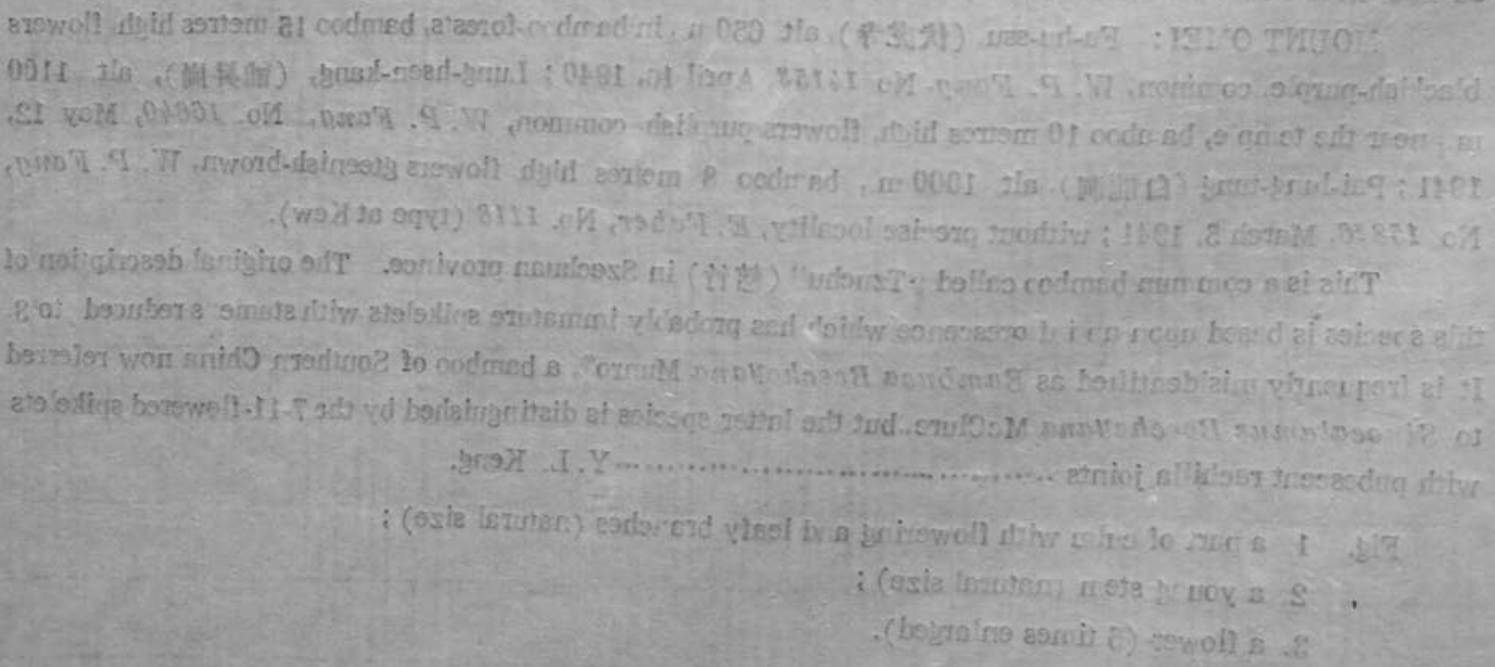 MOUNT O'MEI: alt 650 m, in bamboo-forests, bamboo 15 metres high flowers
blackish-purple, common, W. P. Fang, No April 16, 1940; Lung-hsen-kang, alt 1100
m, near the temple, bamboo 10 metres high, flowers purplish common, W. P. Fang, No. 16640, May 12,
1941; Pai-lung-tung (白龍洞) alt 1000 m, bamboo 8 metres high flowers gteenish-brown, W. P. Fang,
No March 8, 1941; without precise locality, E. Faber, No. 1118 (type at Kew).
This is a common bamboo called "Tzuchu" (慈竹) in Szechuan province. The original description of
this species is based upon an inflorescence which has probably immature spikelets with stamens reduced to 3.
It is frequently misidentified as Bambusa Beecheyana Munro", a bamboo of Southern China now referred
to Sinocalamus Beecheyana McClure, but the latter species is distinguished by the 7-11-flowered spikelets
with pubescent rachilla joints ........................................Y. L. Keng.
Fig. 1 a part of culm with flowering and leafy branches (natural size);
2. a young stem (natural size);
3. a flower (5 times enlarged).